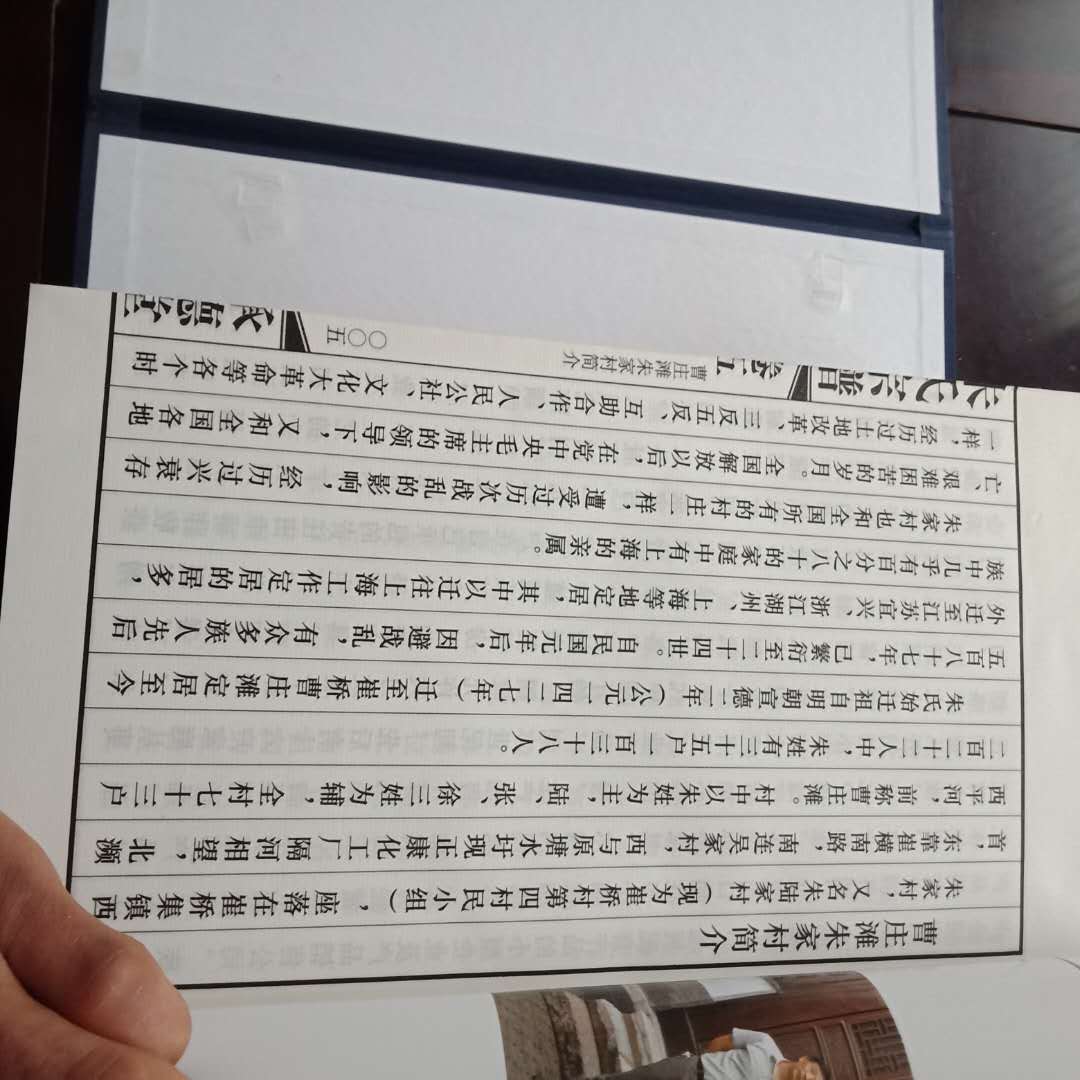 曹庄滩朱家村简介
朱家村，又名朱陆家村（现为崔桥村第四村民小组），座落在崔桥集镇西
首，东靠崔横南路，南连吴家村，西与原塘水圩现正康化工厂隔河相望，北濒
西平河，前称曹庄滩。村中以朱姓为主，陆、张、徐三姓为辅，全村七十三户
二百二十二人中，朱姓有三十五户一百三十八人。
朱氏始迁祖自明朝宣德二年（公元一四二七年）迁至崔桥曹庄滩定居至今
五百八十七年，已繁衍至二十四世。自民国元年后，因避战乱，有众多族人先后
外迁至江苏宜兴、浙江湖州、上海等地定居，其中以迁往上海工作定居的居多，
族中几乎有百分之八十的家庭中有上海的亲属。
朱家村也和全国所有的村庄一样，遭受过历次战乱的影响，经历过兴衰存
亡、艰难困苦的岁月。全国解放以后，在党中央毛主席的领导下，又和全国各地
一样，经历过土地改革、三反五反、互助合作、人民公社、文化大革命等各个时
氏宗谱
曹庄滩朱家村简介
〇〇五